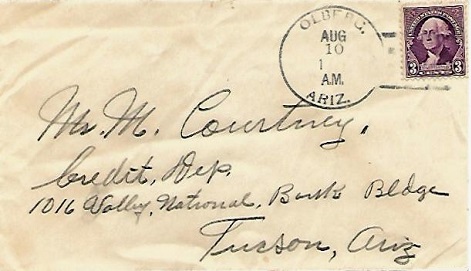 OLBERG.
AUG
10
1
A.M.
ARIZ.
3 3
Mr. M. Courtney,
Credit, Dep.
1016 Valley, National, Bank Bldge
Tucson, Ariz